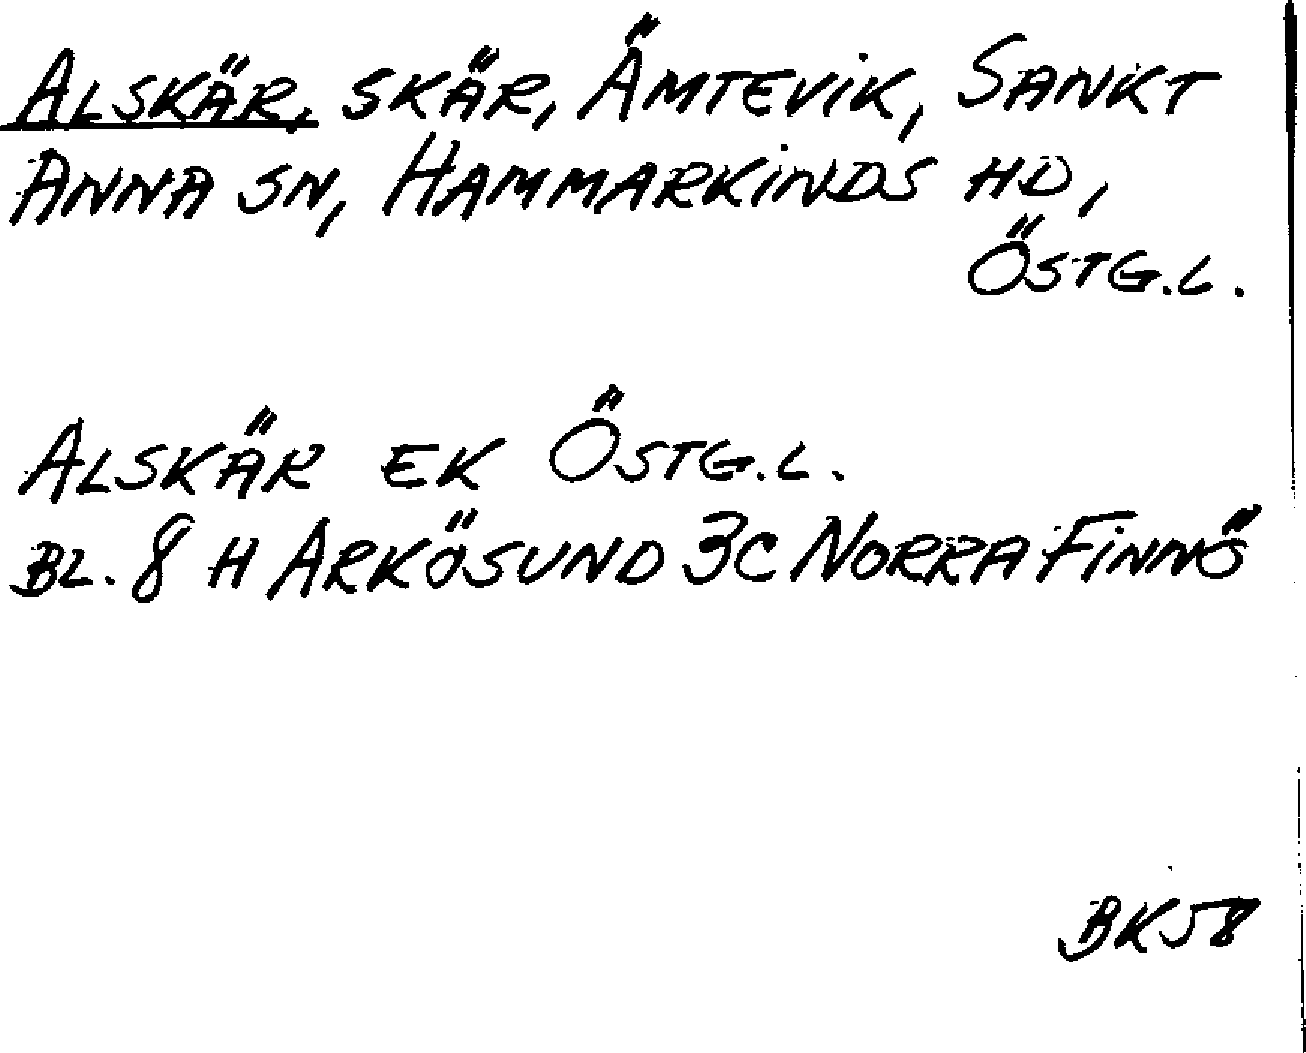 ALSKÄR, SKÄR, ÄMTEVIK, SANKT
ANNA SN, HAMMARKINDS HD,
ÖSTG.L.
ALSKÄR EK ÖSTG.L.
BL. 8 H ARKÖSUND 3C NORRA FINNÖ
BK58